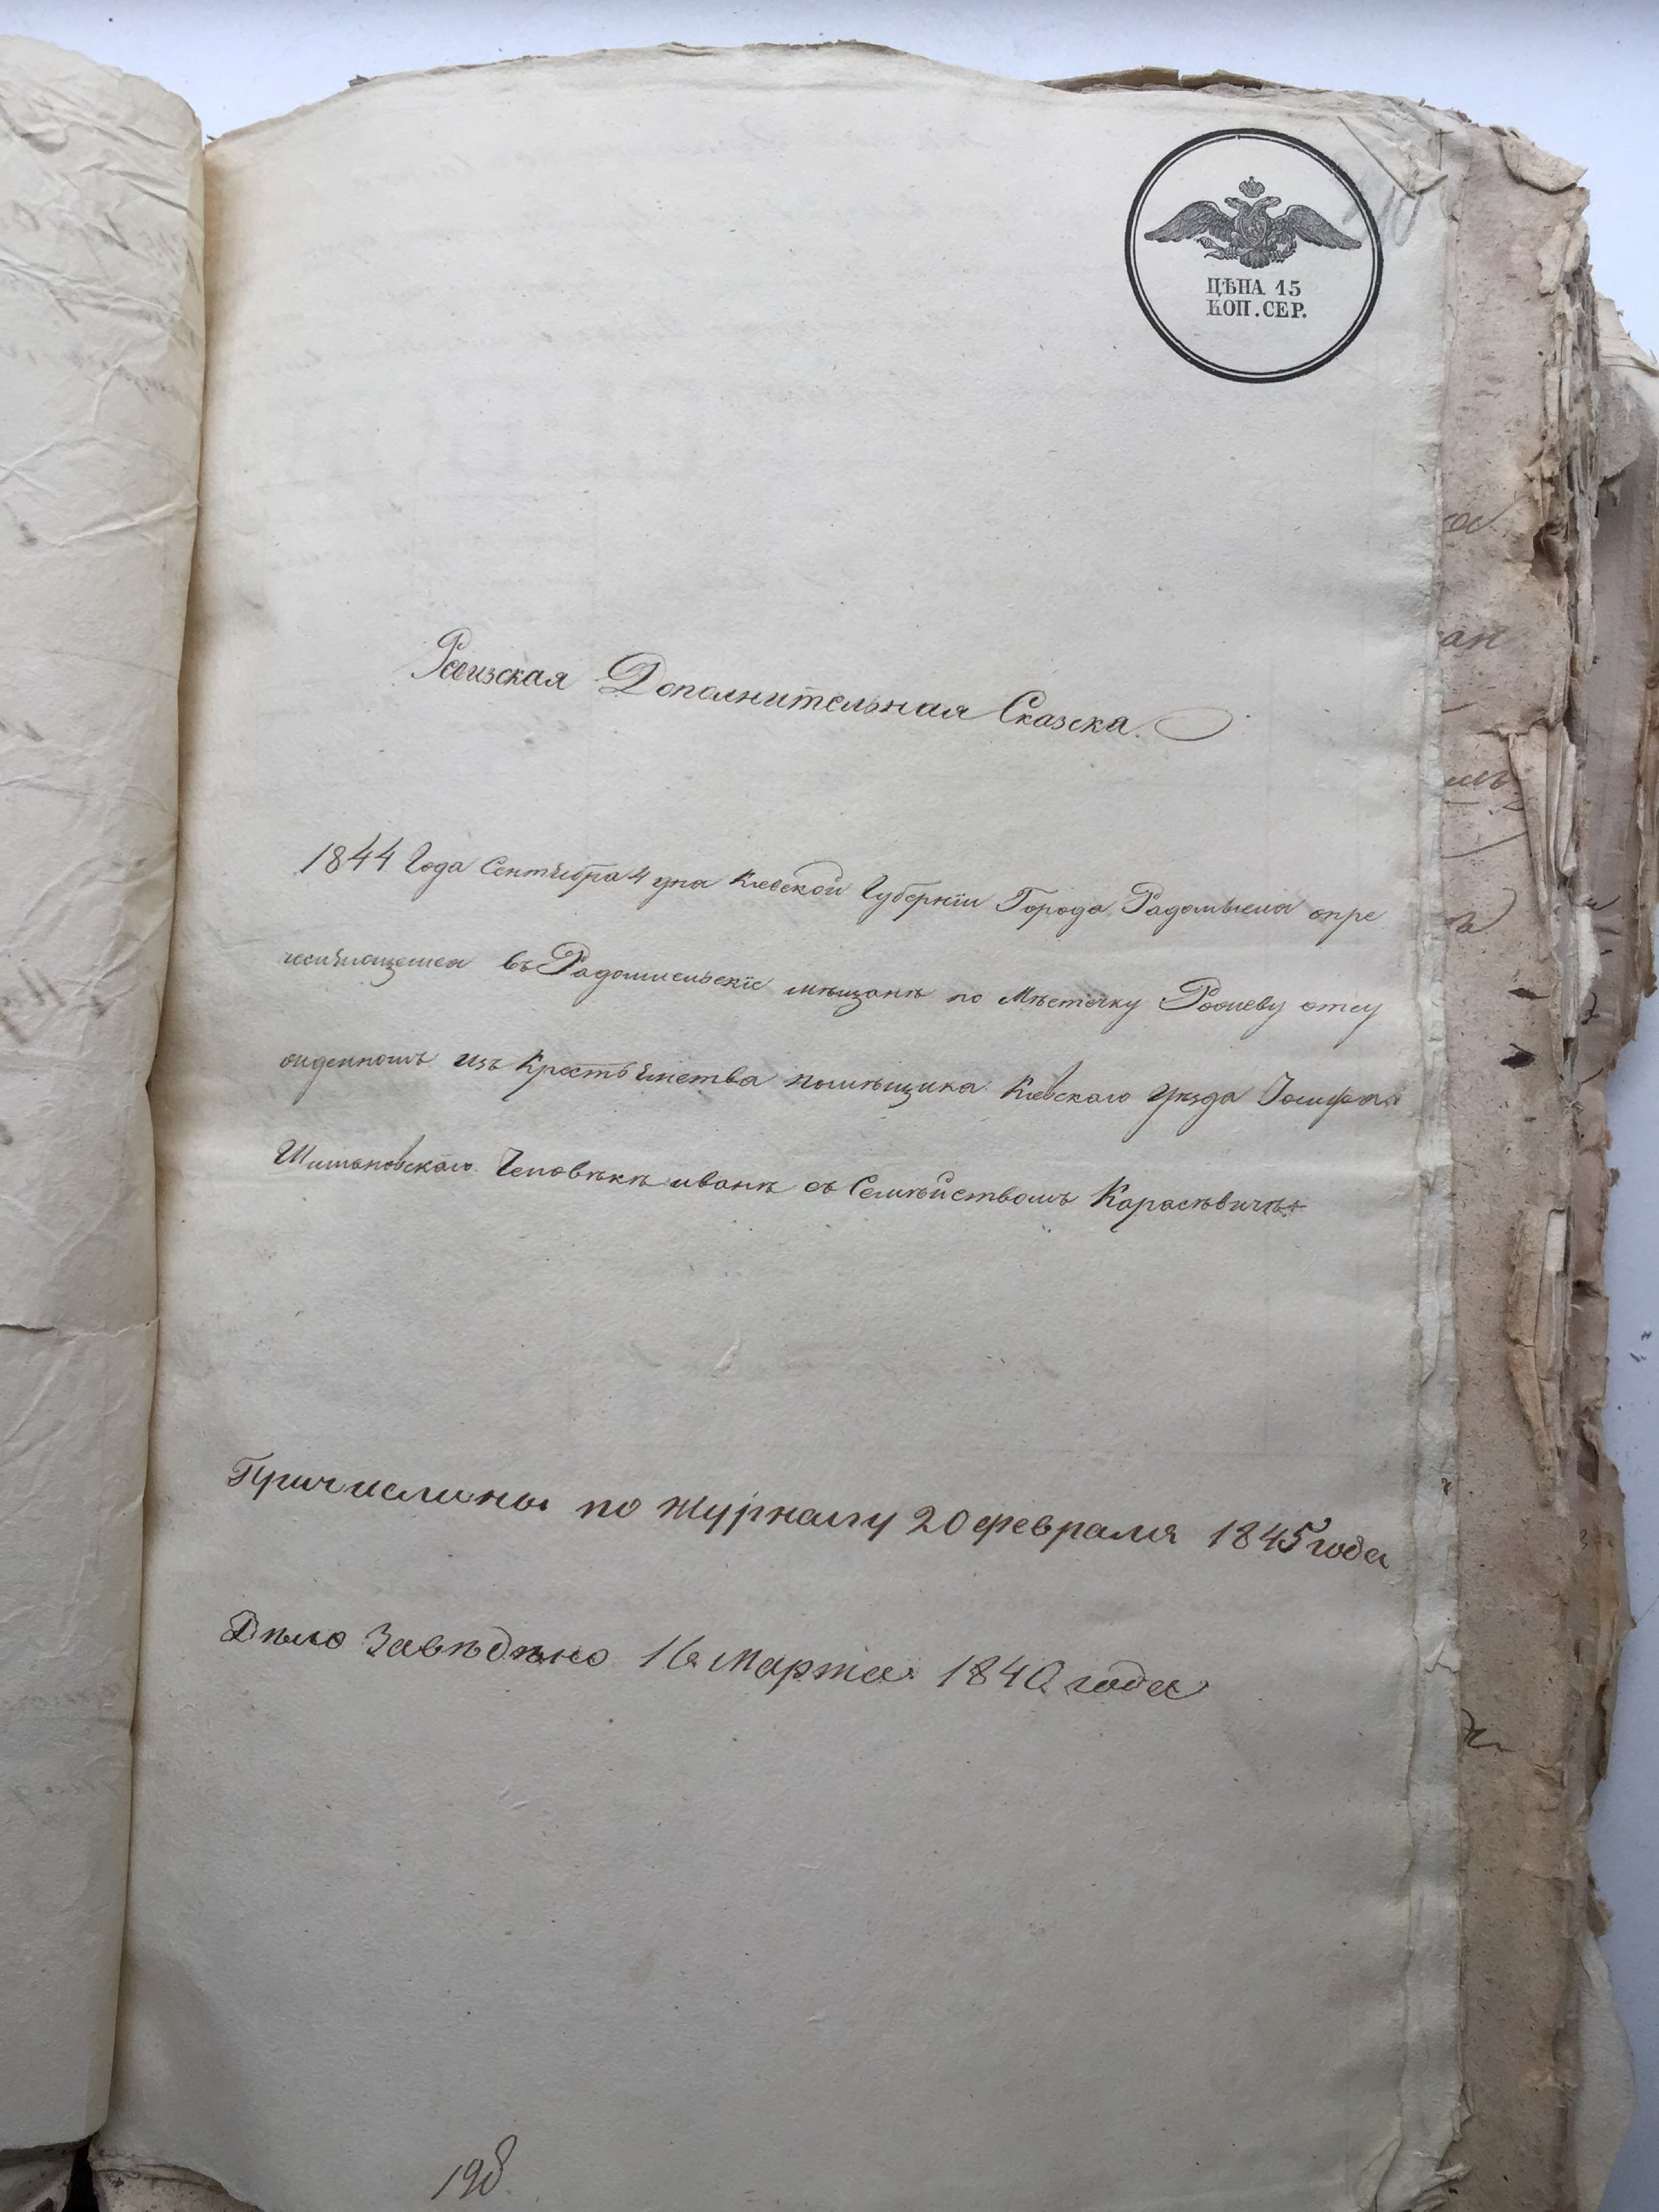 ЦѢНА 15
КОП. СЕР.
Ревизская Дополнительная Сказска.
1844 Года Сентября 4 дна Киевской Губернїи Города Радомысла опре
въ Радомисльскїе мѣщанѣ по Мѣстечку отсу
жденномъ изъ Крестьянства помѣщика Киевскаго Уѣзда Іосифа
Человѣкѣ иванѣ съ Семѣйствомъ Карасѣвичѣ
Причислины по журналу 20 февраля 1845 года
Дѣло Завѣдѣно 16 Марта 1840 года
198